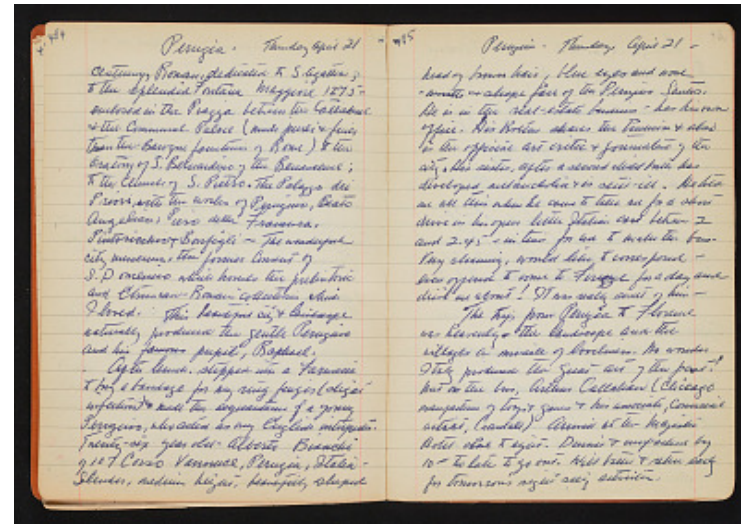 484
Perugia. Thursday April 21 -
century Roman, dedicated to S. Agatha;
to the splendid Fontana Maggiore 1275 -
enclosed in the Piazza between the Cathedral
& the Communal Palace (much purer & finer
than the Baroque fountains of Rome) to the
Oratory of S. Bernardino of the Benevolence;
to the Church of S. Pietro. The Palazzo dei
Priori, with the works of Perugino, Beato
Angelico, Piero della Francesca,
Pinturicchio & Bonfigli - The wonderful
city museum, the former Convent of
S. Domenico which houses the prehistoric
and Etruscan-Roman collections which
I loved. This beautiful city & landscape
naturally produced the gentle Perugino
and his famous pupil, Raphael.
After lunch, stepped into a Farmacia
to buy a bandage for my ring finger (slight
infection) & made the acquaintance of a young
Perugino, who acted as my English interpreter.
Twenty-six year old - Alberto Bianchi
of 107 Corso Perugia, Italia -
Slender, medium height, beautifully shaped
485
Perugia - Thursday April 21 -
head of brown hair, blue eyes and
shape face of the Perugino Saints.
He is in the real-estate business - has his own
office. His brother shares the business & also
is the official art critic & of the
city. His sister, after a second child birth has
developed melancholia & is quite ill. He told
me all this when he came to take me for a short
drive in his open little Italian car between 2
and 2.45 - in time for me to make the bus.
Very charming, would like to correspond -
even offered to come to Firenze for a day and
drive me about! It was really sweet of him -
The trip from Perugia to Florence
was heavenly - the landscape and the
villages a miracle of loveliness. No wonder
Italy produced the great art of the past!
Met on the bus, Arthur Callahan (Chicago
manufacturer of toys & games & his associate, commercial
artist, ). Arrived at the Majestic
Hotel about to eight. Dinner & unpacked by
10 - too late to go out. Will bathe & retire early
for tomorrow's sight seeing activities.